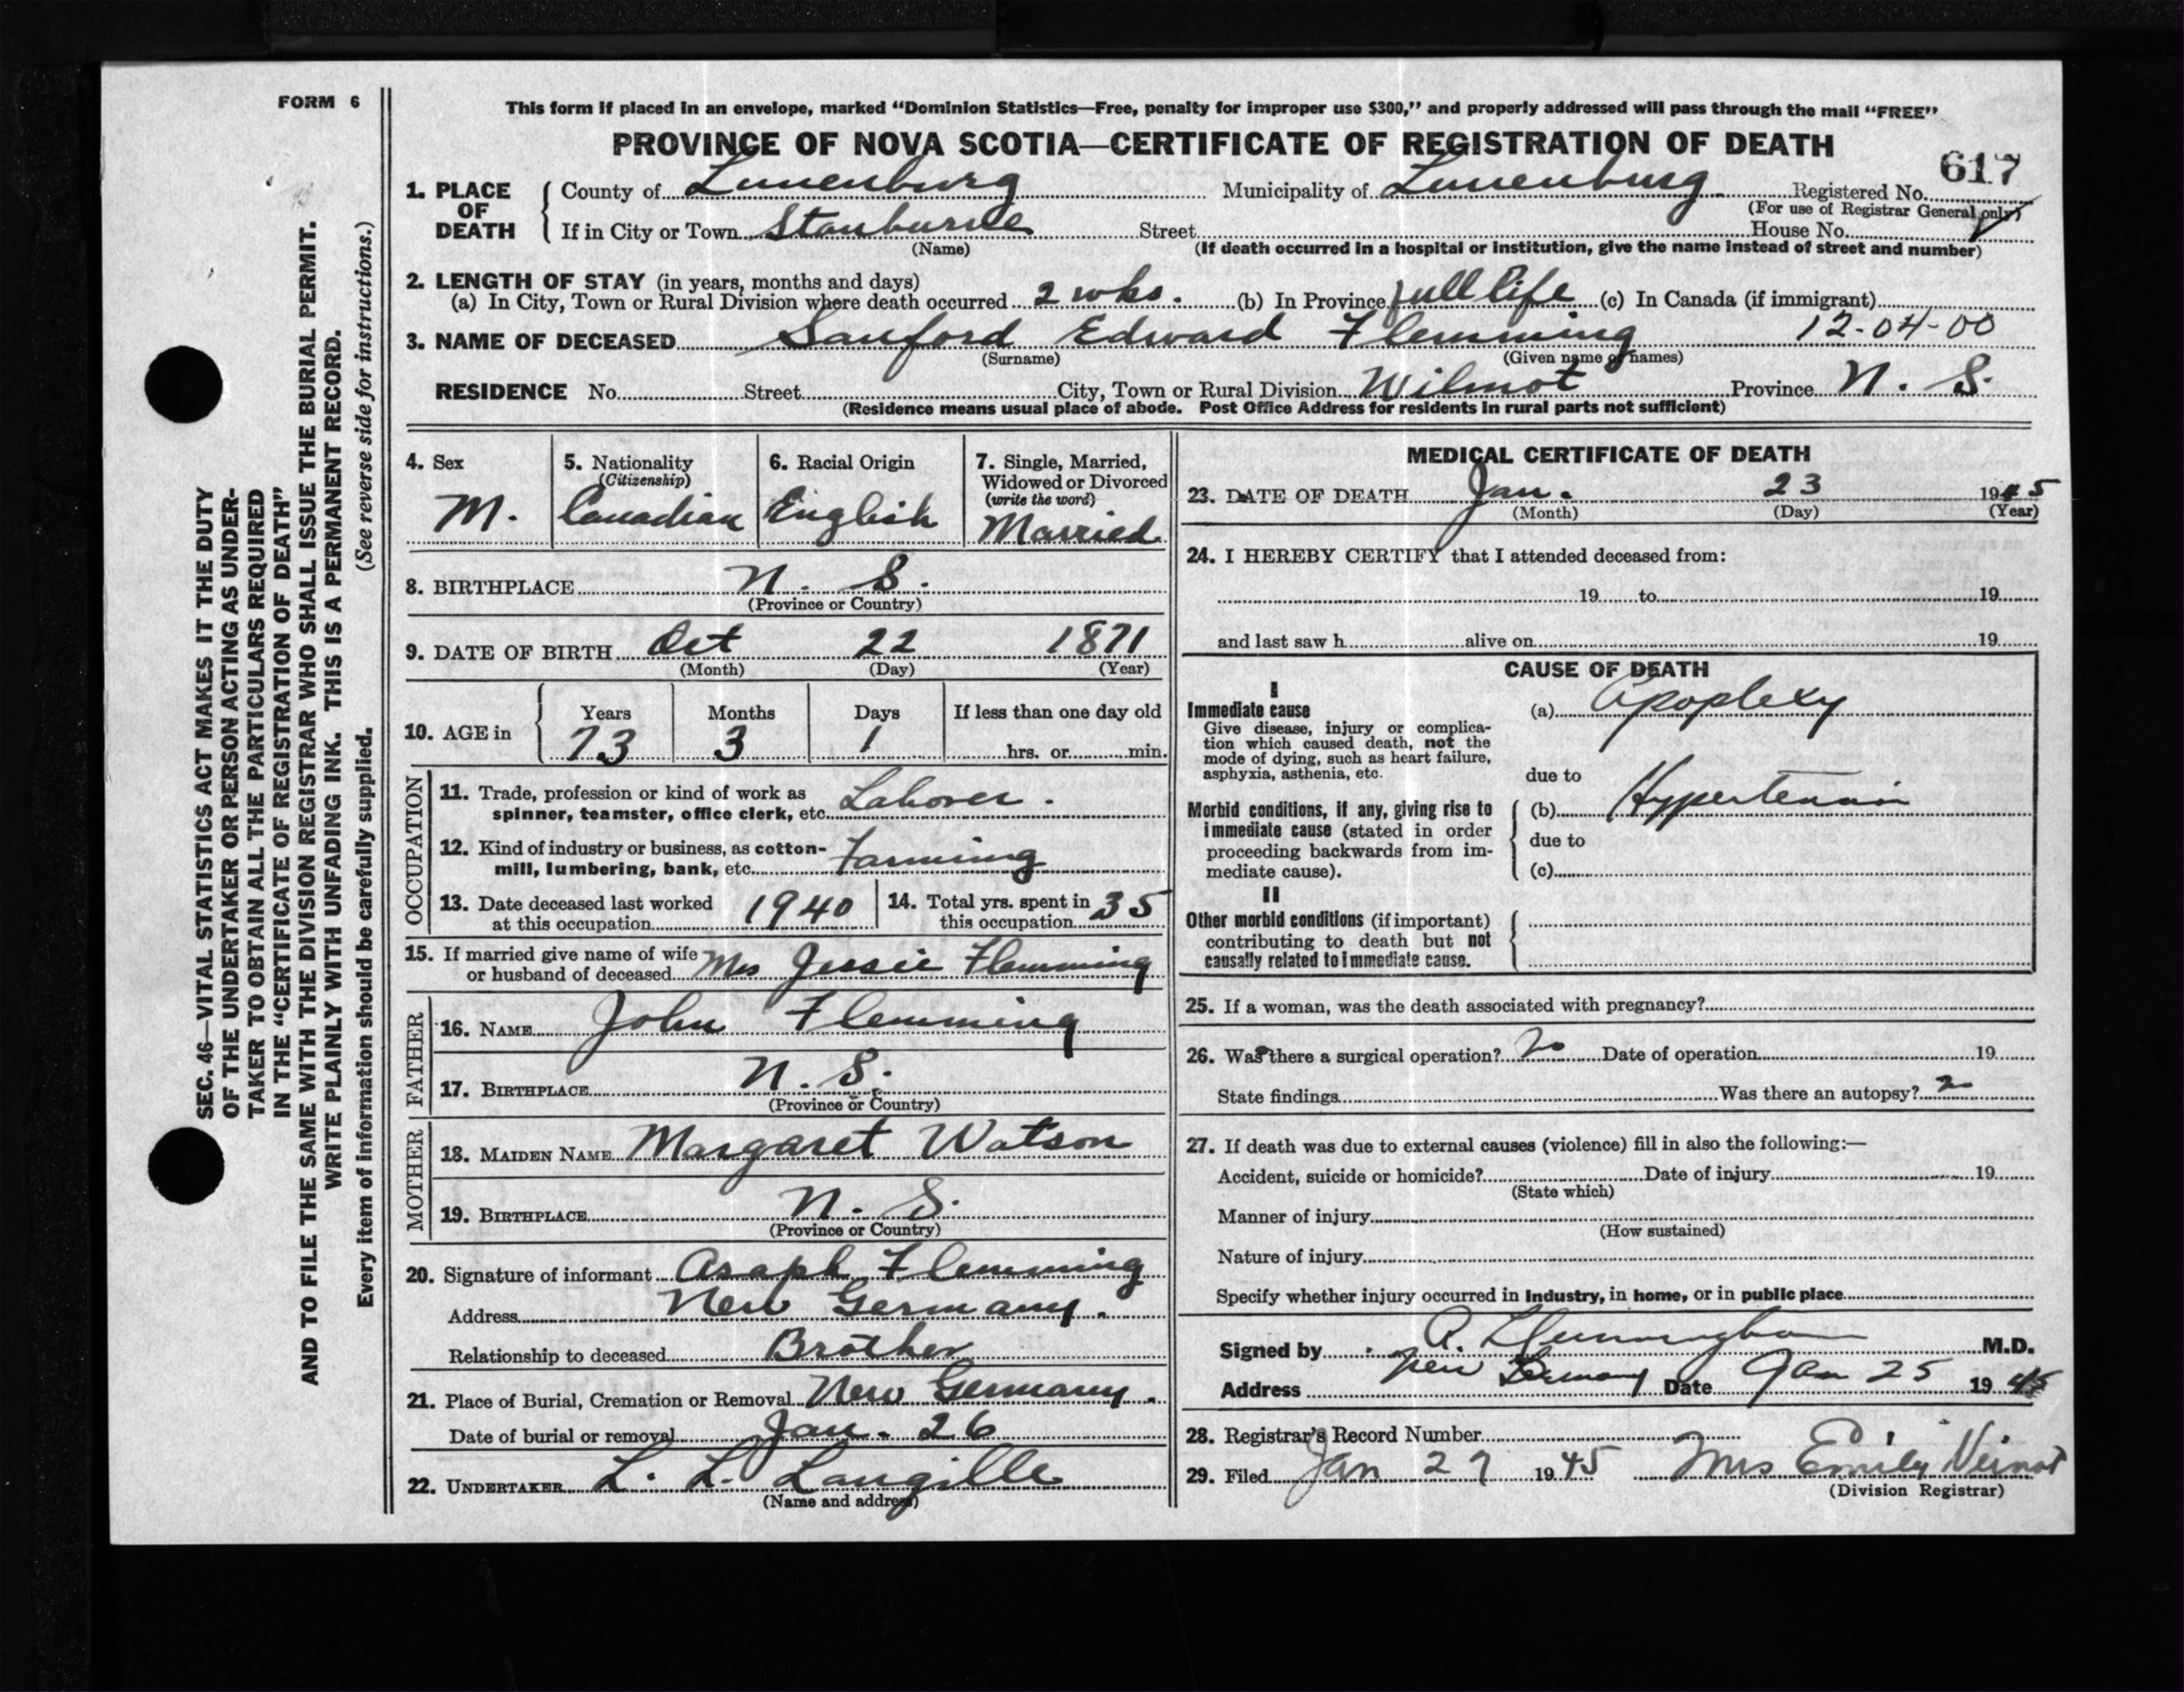 FORM 6
This form if placed in an envelope, marked “Dominion Statistics—Free, penalty for improper use $300,” and properly addressed will pass through the mail “FREE”
PROVINCE OF NOVA SCOTIA—CERTIFICATE OF REGISTRATION OF DEATH
617
1. PLACE OF DEATH
County of Lunenburg Municipality of Lunenburg Registered No.
(For use of Registrar General only)
If in City or Town Stanburne Street House No.
(Name) (If death occurred in a hospital or institution, give the name instead of street and number)
2. LENGTH OF STAY (in years, months and days)
(a) In City, Town or Rural Division where death occurred 2 wks. (b) In Province full life (c) In Canada (if immigrant)
3. NAME OF DECEASED Sanford Edward Flemming 12-04-00
(Surname) (Given name or names)
RESIDENCE No. Street City, Town or Rural Division Wilmot Province N. S.
(Residence means usual place of abode. Post Office Address for residents in rural parts not sufficient)
4. Sex
M.
5. Nationality
(Citizenship)
Canadian
6. Racial Origin
English
7. Single, Married,
Widowed or Divorced
(write the word)
Married
8. BIRTHPLACE N. S.
(Province or Country)
9. DATE OF BIRTH Oct 22 1871
(Month) (Day) (Year)
10. AGE in
Years Months Days If less than one day old
73 3 1 hrs. or min.
OCCUPATION
11. Trade, profession or kind of work as
spinner, teamster, office clerk, etc. Laborer.
12. Kind of industry or business, as cotton-
mill, lumbering, bank, etc. Farming
13. Date deceased last worked
at this occupation 1940
14. Total yrs. spent in
this occupation 35
15. If married give name of wife
or husband of deceased Mrs Jessie Flemming
FATHER
16. NAME John Flemming
17. BIRTHPLACE N. S.
(Province or Country)
MOTHER
18. MAIDEN NAME Margaret Watson
19. BIRTHPLACE N. S.
(Province or Country)
20. Signature of informant Asaph Flemming
Address New Germany.
Relationship to deceased Brother
21. Place of Burial, Cremation or Removal New Germany.
Date of burial or removal Jan. 26
22. UNDERTAKER L. L. Langille
(Name and address)
MEDICAL CERTIFICATE OF DEATH
23. DATE OF DEATH Jan. 23 1945
(Month) (Day) (Year)
24. I HEREBY CERTIFY that I attended deceased from:
19 to 19
and last saw h alive on 19
CAUSE OF DEATH
I
Immediate cause
Give disease, injury or complica-
tion which caused death, not the
mode of dying, such as heart failure,
asphyxia, asthenia, etc.
(a) Apoplexy
due to
Morbid conditions, if any, giving rise to
immediate cause (stated in order
proceeding backwards from im-
mediate cause).
(b) Hypertension
due to
(c)
II
Other morbid conditions (if important)
contributing to death but not
causally related to immediate cause.
25. If a woman, was the death associated with pregnancy?
26. Was there a surgical operation? no Date of operation 19
State findings Was there an autopsy? no
27. If death was due to external causes (violence) fill in also the following:—
Accident, suicide or homicide? Date of injury 19
(State which)
Manner of injury
(How sustained)
Nature of injury
Specify whether injury occurred in industry, in home, or in public place
Signed by M.D.
Address New Germany Date Jan 25 1945
28. Registrar's Record Number
29. Filed Jan 27 1945 Mrs Emily Veinot
(Division Registrar)
SEC. 46—VITAL STATISTICS ACT MAKES IT THE DUTY
OF THE UNDERTAKER OR PERSON ACTING AS UNDER-
TAKER TO OBTAIN ALL THE PARTICULARS REQUIRED
IN THE “CERTIFICATE OF REGISTRATION OF DEATH”
AND TO FILE THE SAME WITH THE DIVISION REGISTRAR WHO SHALL ISSUE THE BURIAL PERMIT.
WRITE PLAINLY WITH UNFADING INK. THIS IS A PERMANENT RECORD.
Every item of information should be carefully supplied. (See reverse side for instructions.)